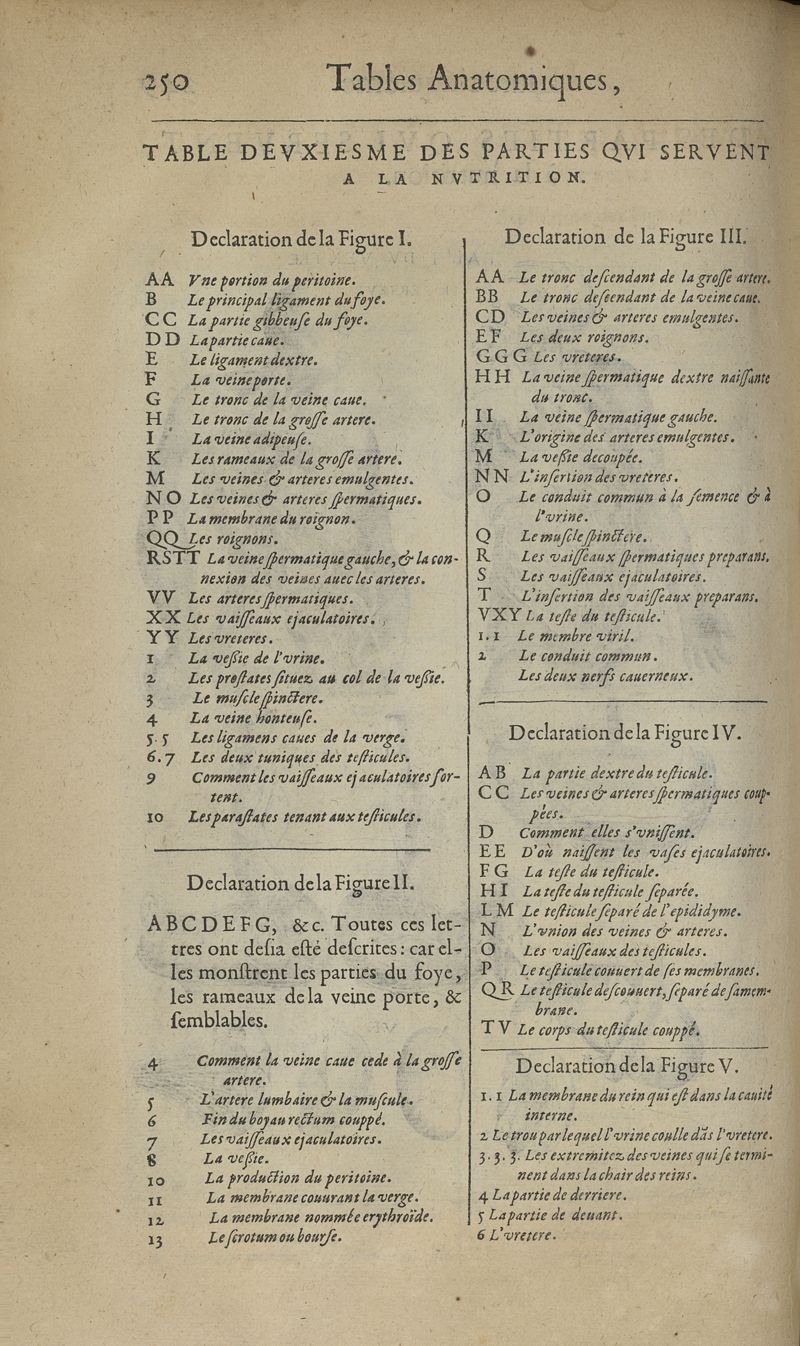 250 Tables Anatomiques,
TABLE DEVXIESME DES PARTIES QVI SERVENT
A LA NVTRITION.
Declaration de la Figure I.
AA Vne portion du peritoine.
B Le principal ligament du foye.
CC La partie gibbeuſe du foye.
DD La partie caue.
E Le ligament dextre.
F La veine porte.
G Le tronc de la veine caue.
H Le tronc de la groſſe artere.
I La veine adipeuſe.
K Les rameaux de la groſſe artere.
M Les veines & arteres emulgentes.
NO Les veines & arteres ſpermatiques.
PP La membrane du roignon.
QQ Les roignons.
RSTT La veine ſpermatique gauche, & la con-
nexion des veines auec les arteres.
VV Les arteres ſpermatiques.
XX Les vaiſſeaux ejaculatoires.
YY Les vreteres.
1 La veſsie de l'vrine.
2 Les proſtates ſituez au col de la veſsie.
3 Le muſcle ſpinctere.
4 La veine honteuſe.
5.5 Les ligamens caues de la verge.
6.7 Les deux tuniques des teſticules.
9 Comment les vaiſſeaux ejaculatoires ſor-
tent.
10 Les paraſtates tenant aux teſticules.
Declaration de la Figure II.
ABCDEFG, &c. Toutes ces let-
tres ont deſia eſté deſcrites : car el-
les monſtrent les parties du foye,
les rameaux de la veine porte, &
ſemblables.
4 Comment la veine caue cede à la groſſe
artere.
5 L'artere lumbaire & la muſcule.
6 Fin du boyau rectum couppé.
7 Les vaiſſeaux ejaculatoires.
8 La veſsie.
10 La production du peritoine.
11 La membrane couurant la verge.
12 La membrane nommée erythroïde.
13 Le ſcrotum ou bourſe.
Declaration de la Figure III.
AA Le tronc deſcendant de la groſſe artere.
BB Le tronc deſcendant de la veine caue.
CD Les veines & arteres emulgentes.
EF Les deux roignons.
GGG Les vreteres.
HH La veine ſpermatique dextre naiſſante
du tronc.
II La veine ſpermatique gauche.
K L'origine des arteres emulgentes.
M La veſsie decoupée.
NN L'inſertion des vreteres.
O Le conduit commun à la ſemence & à
l'vrine.
Q Le muſcle ſpinctere.
R Les vaiſſeaux ſpermatiques preparans.
S Les vaiſſeaux ejaculatoires.
T L'inſertion des vaiſſeaux preparans.
VXY La teſte du teſticule.
1.1 Le membre viril.
2 Le conduit commun.
Les deux nerfs cauerneux.
Declaration de la Figure IV.
AB La partie dextre du teſticule.
CC Les veines & arteres ſpermatiques coup-
pées.
D Comment elles s'vniſſent.
EE D'où naiſſent les vaſes ejaculatoires.
FG La teſte du teſticule.
HI La teſte du teſticule ſeparée.
LM Le teſticule ſeparé de l'epididyme.
N L'vnion des veines & arteres.
O Les vaiſſeaux des teſticules.
P Le teſticule couuert de ſes membranes.
QR Le teſticule deſcouuert, ſeparé de ſa mem-
brane.
TV Le corps du teſticule couppé.
Declaration de la Figure V.
1.1 La membrane du rein qui eſt dans la cauité
interne.
2 Le trou par lequel l'vrine coulle dãs l'vretere.
3.3.3. Les extremitez des veines qui ſe termi-
nent dans la chair des reins.
4 La partie de derriere.
5 La partie de deuant.
6 L'vretere.